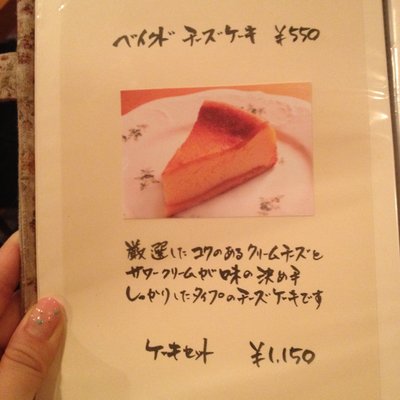 ベイクド チーズケーキ ¥550
厳選したコクのあるクリームチーズと
サワークリームが味の決め手
しっかりしたタイプのチーズケーキです
ケーキセット ¥1,150